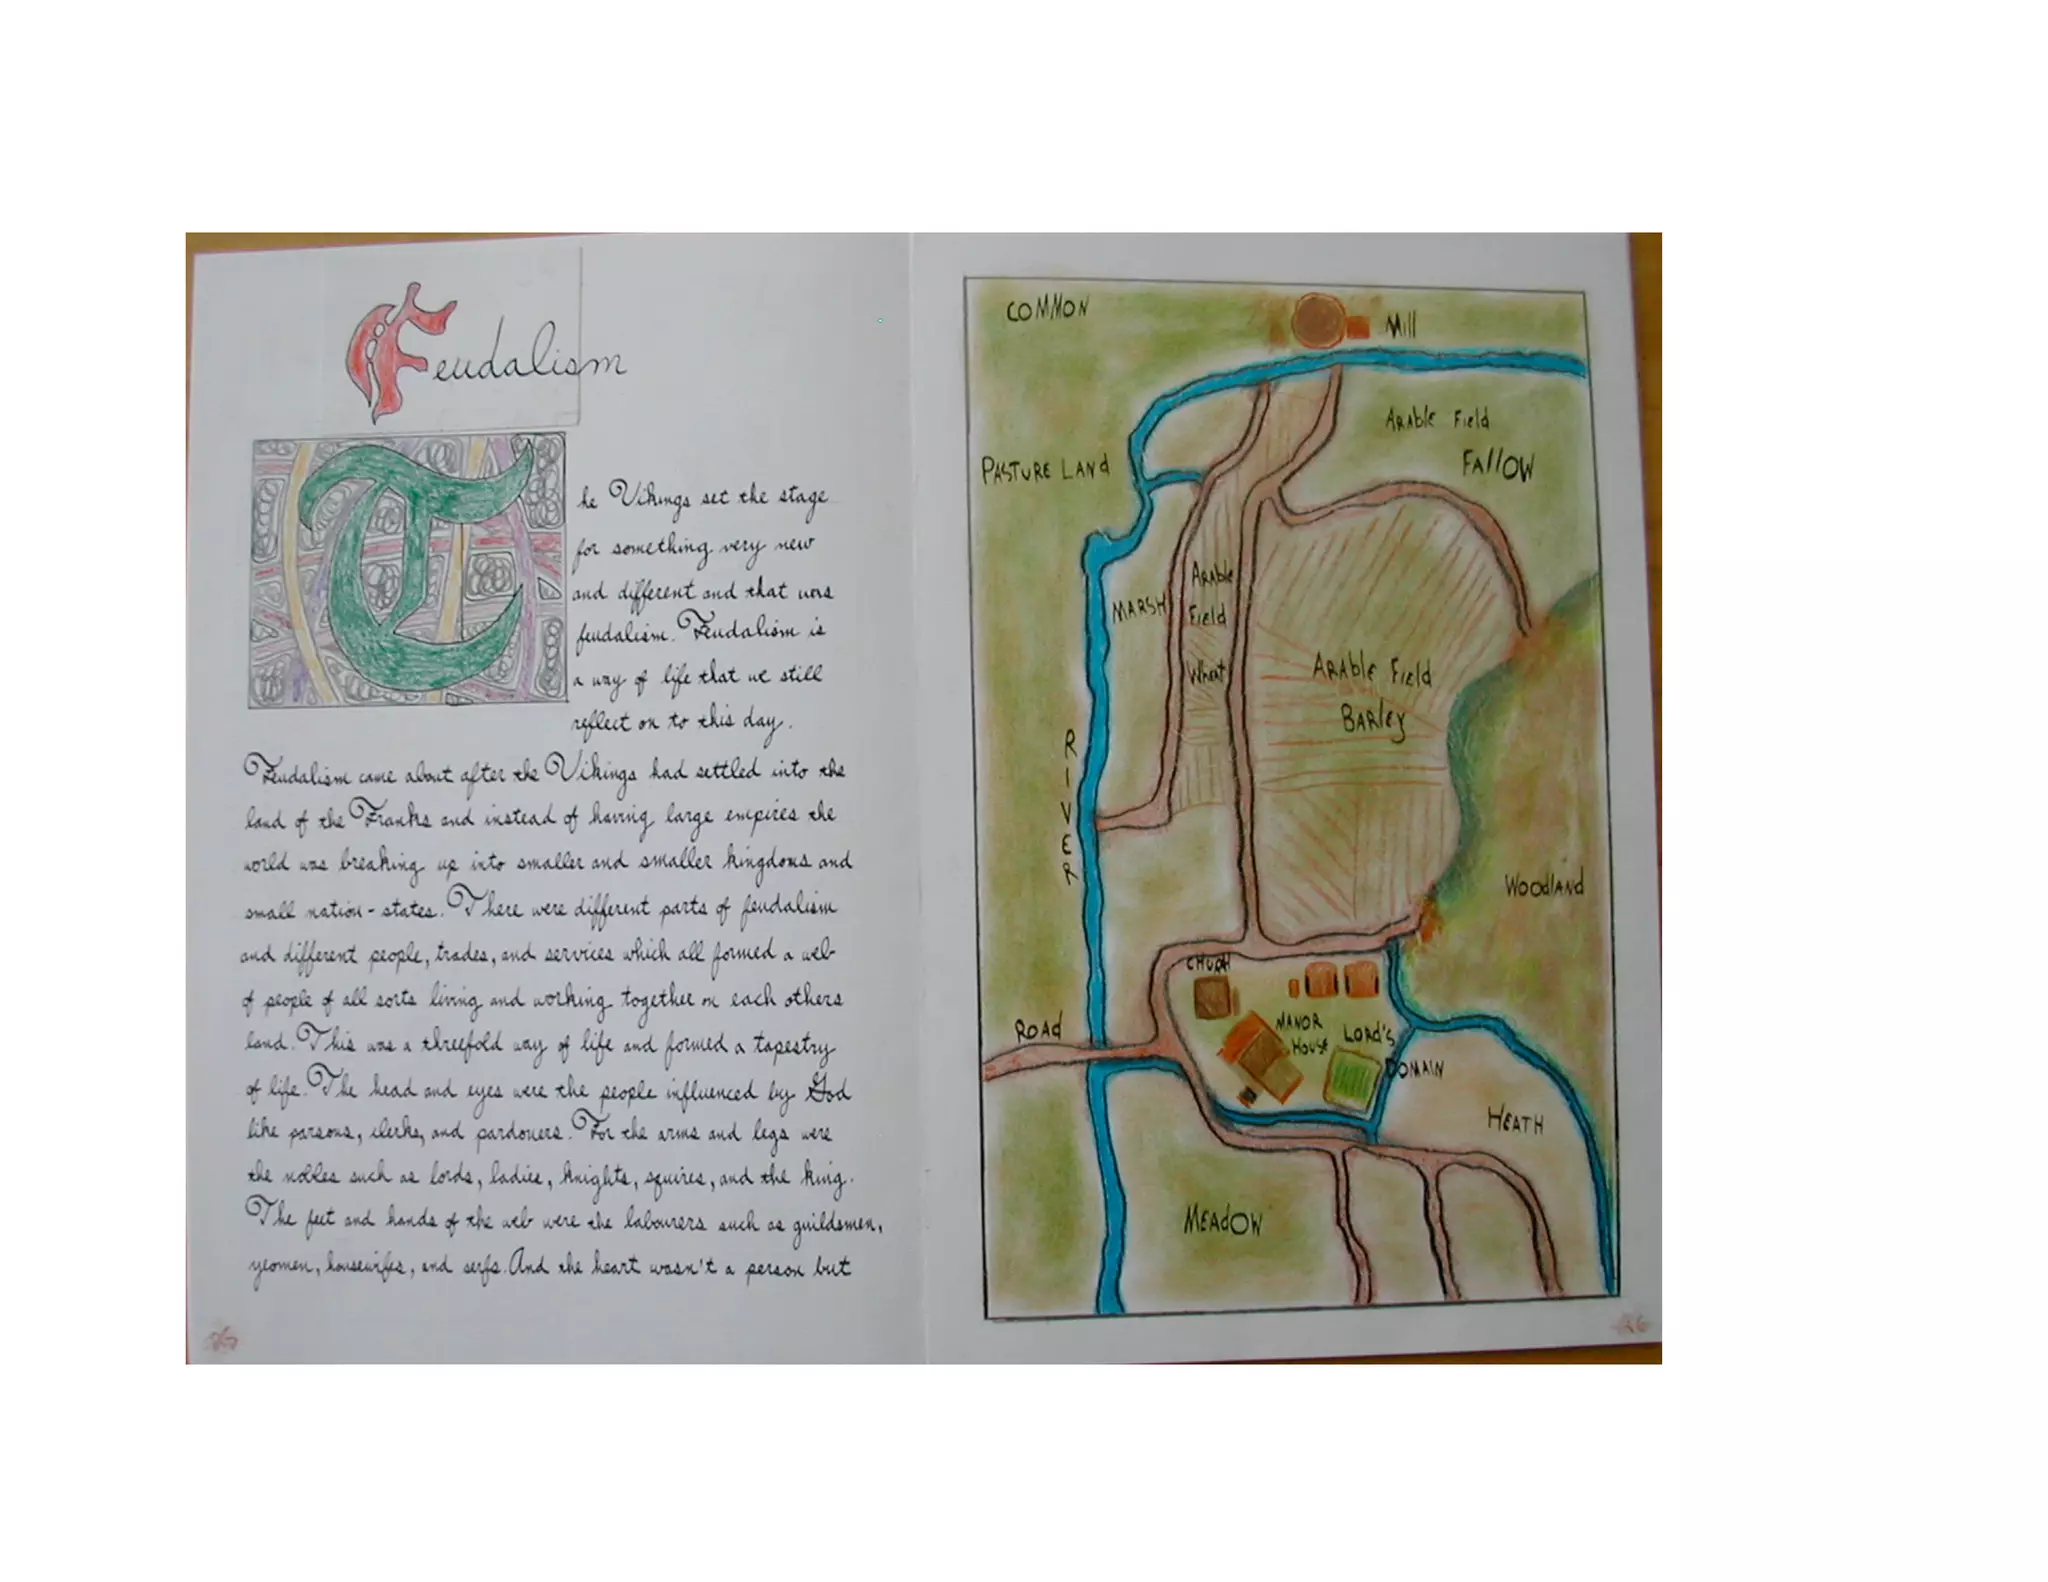 Feudalism
The Vikings set the stage
for something very new
and different and that was
feudalism. Feudalism is
a way of life that we still
reflect on to this day.
Feudalism came about after the Vikings had settled into the
land of the Franks and instead of having large empires the
world was breaking up into smaller and smaller kingdoms and
small nation-states. There were different parts of feudalism
and different people, trades, and services which all formed a web
of people of all sorts living and working together on each others
land. This was a threefold way of life and formed a tapestry
of life. The head and eyes were the people influenced by God
like parsons, clerks, and pardoners. For the arms and legs were
the nobles such as lords, ladies, knights, squires, and the king.
The feet and hands of the web were the labourers such as guildsmen,
yeomen, housewifes, and serfs. And the heart wasn't a person but
COMMON
Mill
Arable Field
Fallow
Pasture Land
Marsh
Arable
Field
Wheat
Arable Field
Barley
RIVER
Woodland
Road
Manor
House
Lord's
Domain
Heath
Meadow
26